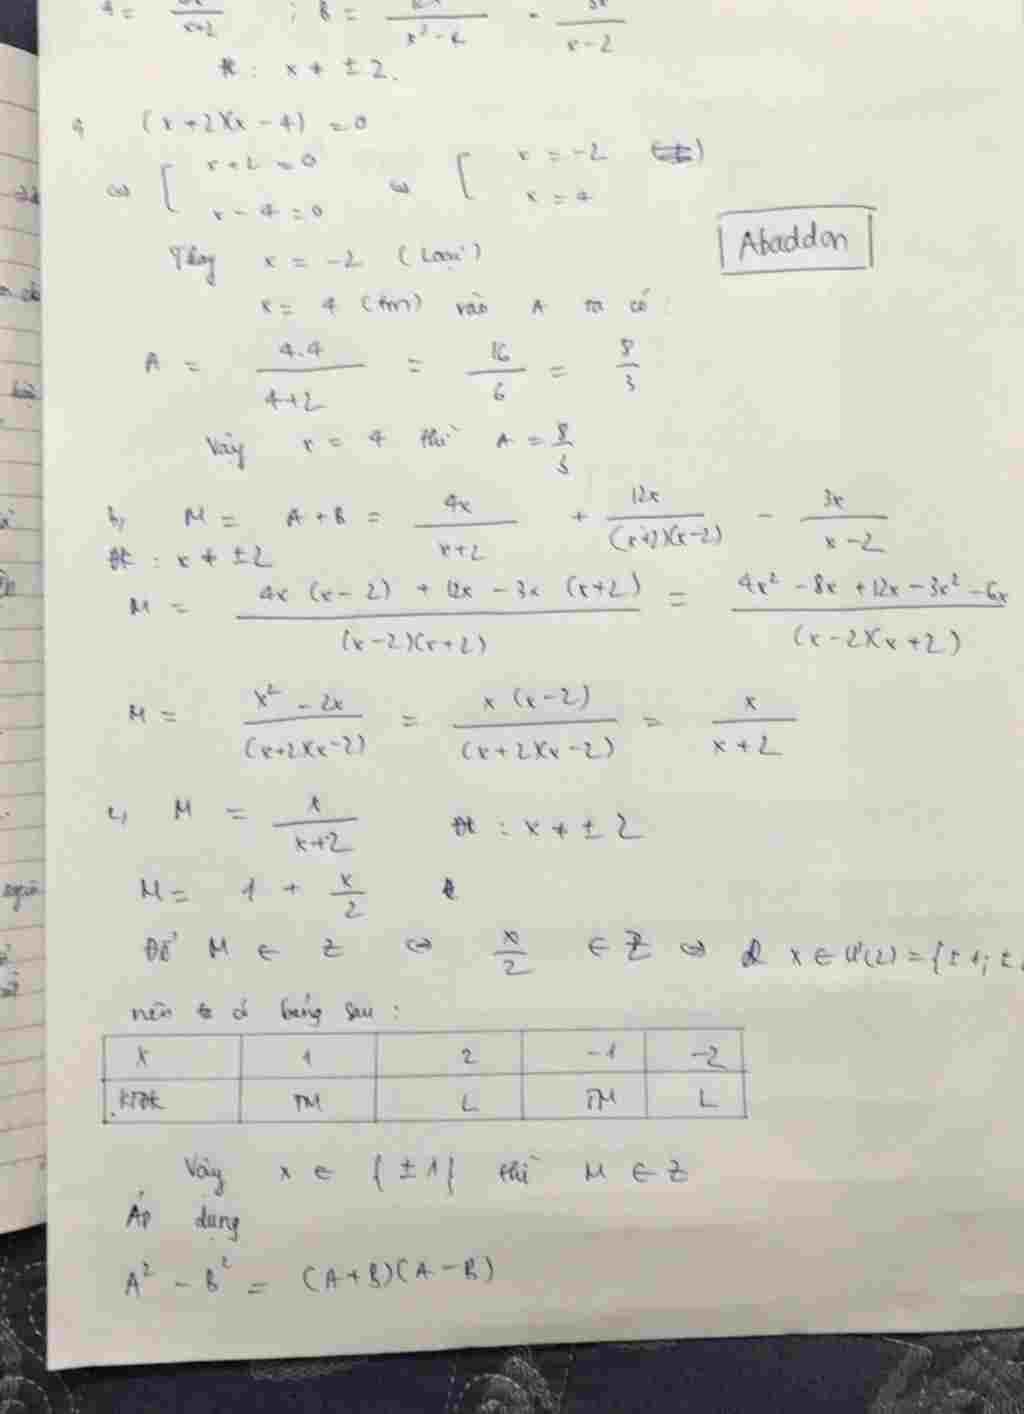 A = /(x+2) ; B = /(x² - 4) - 3x/(x-2)
ĐK : x ≠ ±2.
(x+2)(x-4) = 0
⇔ [ x+2 = 0 ⇔ [ x = -2
x - 4 = 0 x = 4
Abaddon
Thay x = -2 (Loại)
x = 4 (tm) vào A ta có :
A = 4.4/(4+2) = 16/6 = 8/3
Vậy x = 4 thì A = 8/3
b, M = A + B = 4x/(x+2) + 12x/((x+2)(x-2)) - 3x/(x-2)
ĐK : x ≠ ±2
M = (4x (x-2) + 12x - 3x (x+2))/((x-2)(x+2)) = (4x² - 8x + 12x - 3x² - 6x)/((x-2)(x+2))
M = (x² - 2x)/((x+2)(x-2)) = x (x-2)/((x+2)(x-2)) = x/(x+2)
c, M = x/(x+2) ĐK : x ≠ ± 2
M = 1 + x/2
Để M ∈ Z ⇔ x/2 ∈ Z ⇔ x ∈ Ư(2) = {±1; ±
nên ta có bảng sau :
x 1 2 -1 -2
KTĐK TM L TM L
Vậy x ∈ {±1} thì M ∈ Z
Áp dụng
A² - B² = (A+B)(A-B)